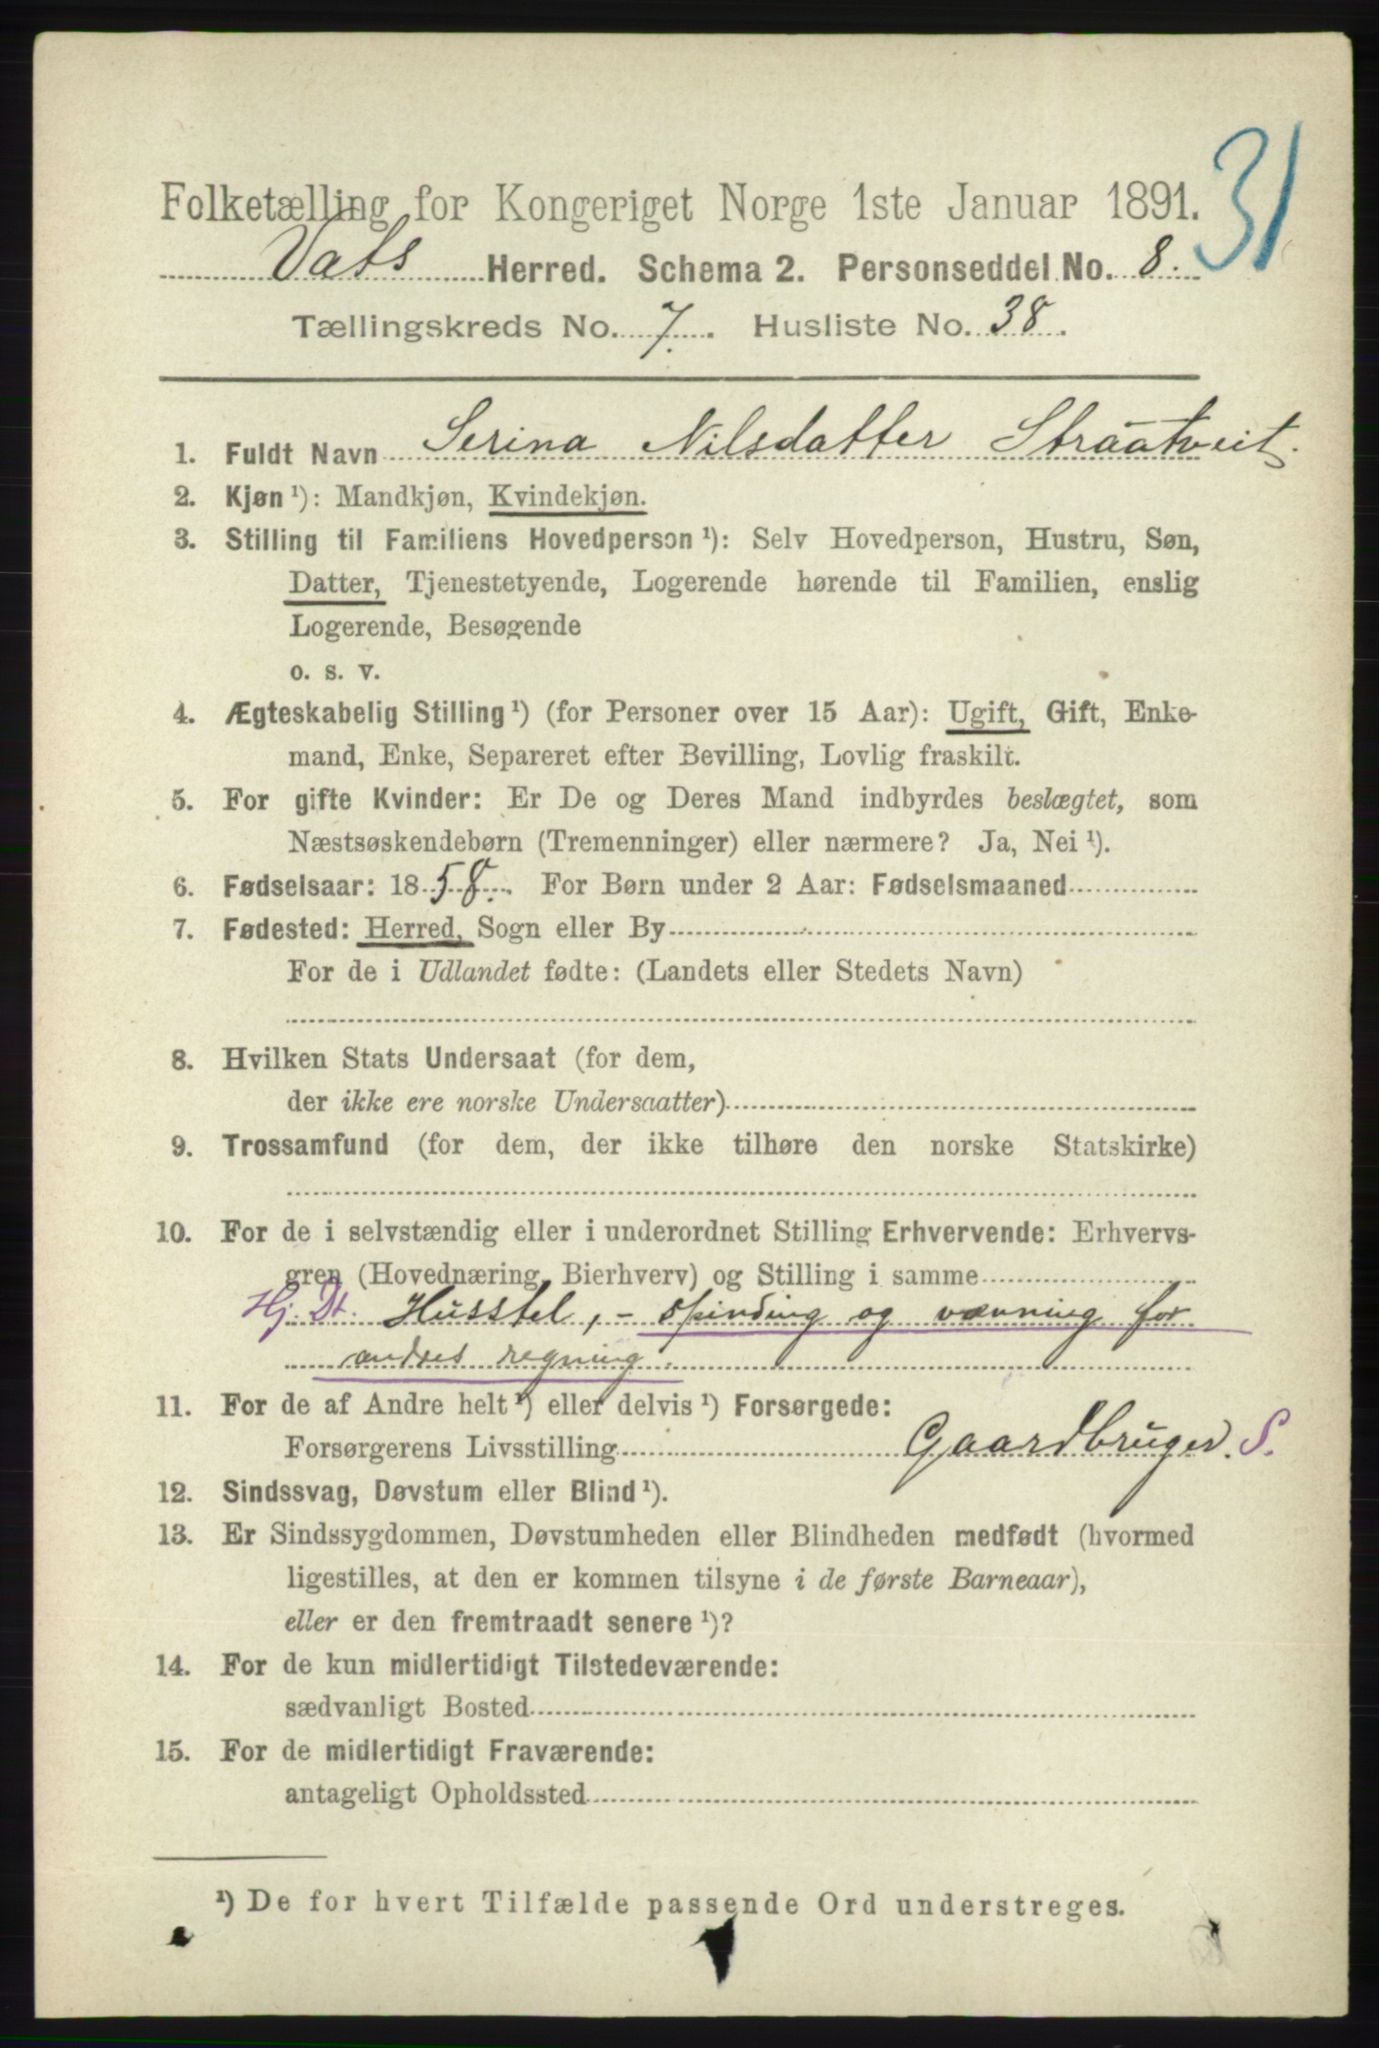 31
Folketælling for Kongeriget Norge 1ste Januar 1891.
Vats Herred. Schema 2. Personseddel No. 8.
Tællingskreds No. 7. Husliste No. 38.
1. Fuldt Navn Serina Nilsdatter Straatveit.
2. Kjøn ¹): Mandkjøn, Kvindekjøn.
3. Stilling til Familiens Hovedperson ¹): Selv Hovedperson, Hustru, Søn,
Datter, Tjenestetyende, Logerende hørende til Familien, enslig
Logerende, Besøgende
o. s. v.
4. Ægteskabelig Stilling ¹) (for Personer over 15 Aar): Ugift, Gift, Enke-
mand, Enke, Separeret efter Bevilling, Lovlig fraskilt.
5. For gifte Kvinder: Er De og Deres Mand indbyrdes beslægtet, som
Næstsøskendebørn (Tremenninger) eller nærmere? Ja, Nei ¹).
6. Fødselsaar: 1858. For Børn under 2 Aar: Fødselsmaaned
7. Fødested: Herred, Sogn eller By
For de i Udlandet fødte: (Landets eller Stedets Navn)
8. Hvilken Stats Undersaat (for dem,
der ikke ere norske Undersaatter)
9. Trossamfund (for dem, der ikke tilhøre den norske Statskirke)
10. For de i selvstændig eller i underordnet Stilling Erhvervende: Erhvervs-
gren (Hovednæring, Bierhverv) og Stilling i samme
Hj. Dt. Husstel, - spinding og vævning for
andres regning.
11. For de af Andre helt ¹) eller delvis ¹) Forsørgede:
Forsørgerens Livsstilling Gaardbruger. S.
12. Sindssvag, Døvstum eller Blind ¹).
13. Er Sindssygdommen, Døvstumheden eller Blindheden medfødt (hvormed
ligestilles, at den er kommen tilsyne i de første Barneaar),
eller er den fremtraadt senere ¹)?
14. For de kun midlertidigt Tilstedeværende:
sædvanligt Bosted
15. For de midlertidigt Fraværende:
antageligt Opholdssted
¹) De for hvert Tilfælde passende Ord understreges.